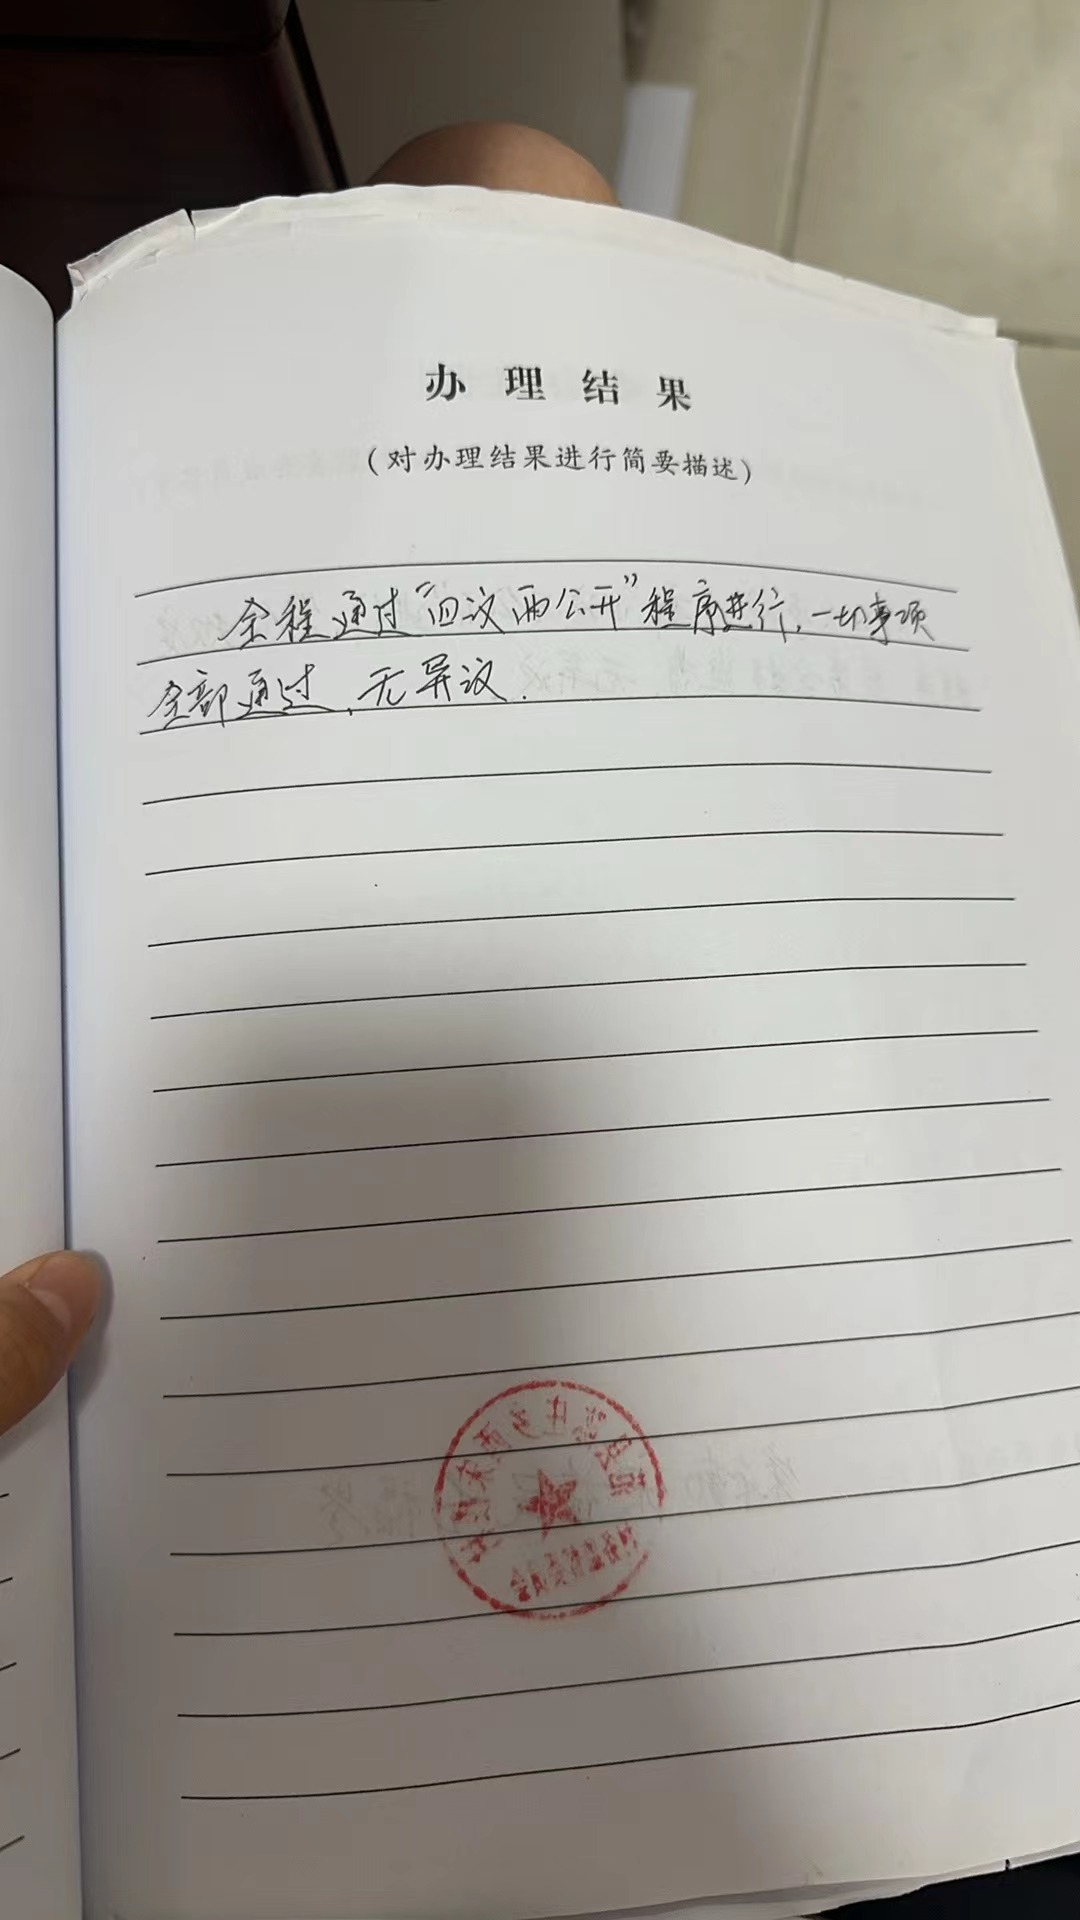 办理结果
(对办理结果进行简要描述)
全程通过“四议两公开”程序进行，一切事项
全部通过，无异议.